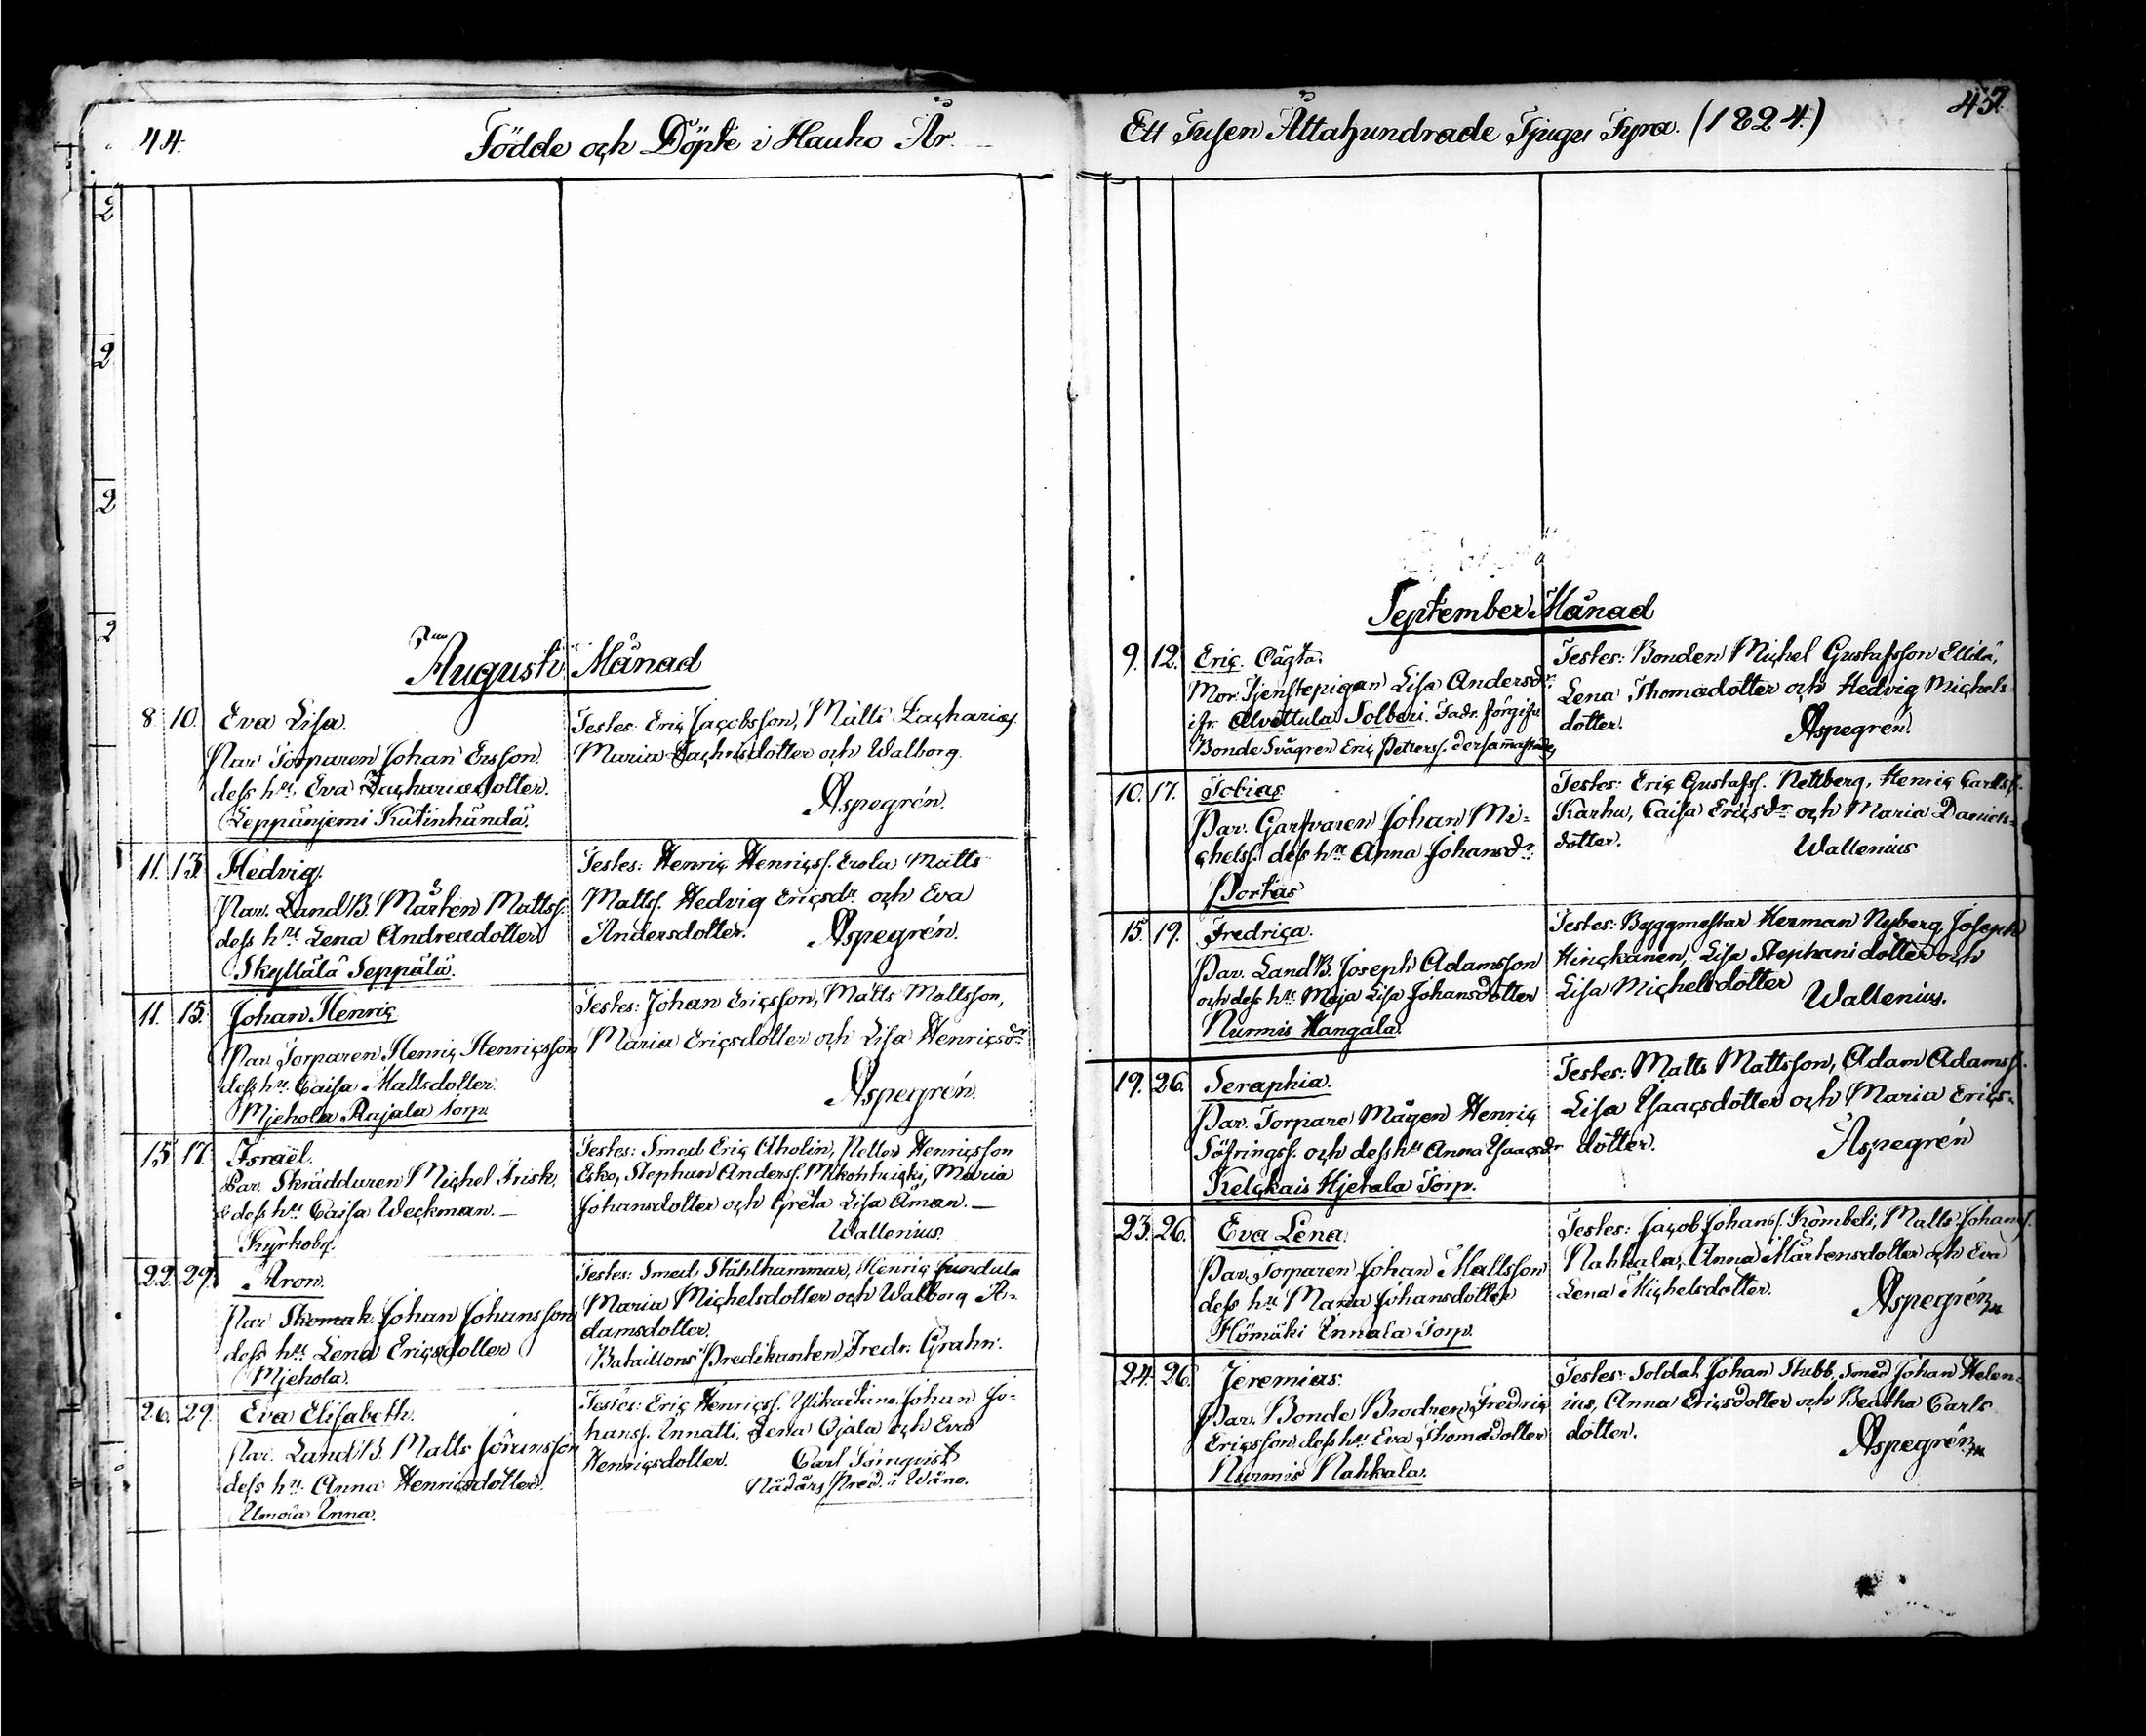 44.
Födde och Döpte i Hauho År.
Augusti Månad
8. 10. Eva Lisa.
Par. Torparen Johan Ersson
dess hu. Eva Zachariædotter.
Leppäniemi Kätinhändä.
Testes: Eric Jacobsson, Matts Zachariæs.
Maria Zachrisdotter och Walborg.
Aspegrén.
11. 13. Hedvig.
Par. Land B. Mårten Mattss.
dess hu. Lena Andreædotter
Skyttälä Seppälä.
Testes: Henric Henricss. Erola Matts
Mattss. Hedvig Ericsdr och Eva
Andersdotter. Aspegrén.
11. 15. Johan Henric
Par. Torparen Henric Henricsson
dess hu. Caisa Mattsdotter.
Miehola Rajala torp.
Testes: Johan Ericsson, Matts Mattsson,
Maria Ericsdotter och Lisa Henricsdr
Aspegrén.
15. 17. Israël.
Par. Skräddaren Michel Frisk,
& dess hu. Caisa Weckman. —
Kyrkoby.
Testes: Smed Eric Aholin, Petter Henricsson
Esko, Stephan Anderss. Maria
Johansdotter och Greta Lisa Åman. —
Wallenius.
22. 29. Aron.
Par. Skomak. Johan Johansson
dess hu. Lena Ericsdotter
Miehola.
Testes: Smed Stålhammar, Henric Jundula
Maria Michelsdotter och Walborg A-
damsdotter.
Bataillons Predikanten Fredr. Grahn.
26. 29. Eva Elisabeth.
Par. Land B. Matts Göransson
dess hu. Anna Henricsdotter.
Enna.
Testes: Eric Henricss. Johan Jo-
hanss. Ennatti, Lena Ojala och Eva
Henricsdotter. Carl Törnqvist
Nådårs Pred. i Wåno.
Ett Tusen Åttahundrade Tjugu Fyra. (1824.)
45.
September Månad
9. 12. Eric. Oägta.
Mor. Tjenstepigan Lisa Andersdr.
ifr. Alvettula Solberi. Fadr. föregifves
Bonde Svågren Eric Petterss. dersammastädes
Testes: Bonden Michel Gustafsson Ellilä,
Lena Thomædotter och Hedvig Michels-
dotter. Aspegrén.
10. 17. Tobias
Par. Garfvaren Johan Mi-
chelss. dess hu. Anna Johansdr.
Portas
Testes: Eric Gustafss. Nettberg, Henric Carlss.
Karhu, Caisa Ericsdr och Maria Daniels-
dotter. Wallenius
15. 19. Fredrica.
Par. Land B. Joseph Adamsson
och dess hu. Maja Lisa Johansdotter
Nurmis Hangala.
Testes: Byggmestar Herman Nyberg, Joseph
Hinckanen, Lisa Stephanidotter och
Lisa Michelsdotter Wallenius.
19. 26. Seraphia.
Par. Torpare Mågen Henric
Säfringss. och dess hu. Anna Isaacsdr
Kelckais Hjetala Torp.
Testes: Matts Mattsson, Adam Adamss.
Lisa Isaacsdotter och Maria Erics-
dotter. Aspegrén
23. 26. Eva Lena.
Par. Torparen Johan Mattsson
dess hu. Maria Johansdotter
Hömäki Ennala Torp.
Testes: Jacob Johanss. Kömbeli, Matts Johanss.
Nahkala, Anna Mårtensdotter och Eva
Lena Michelsdotter. Aspegrén
24. 26. Jeremias.
Par. Bonde Brodren Fredric
Ericsson, dess hu. Eva Thomædotter
Nurmis Nahkala.
Testes: Soldat Johan Stubb, Smed Johan Helen-
ius, Anna Ericsdotter och Beatha Carls
dotter. Aspegrén